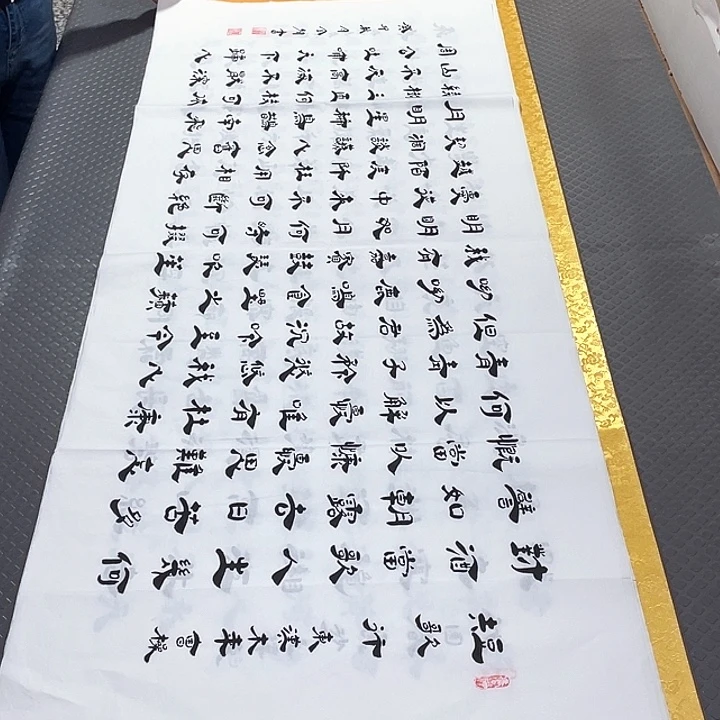 短歌行 東漢末年曹操
對酒當歌人生幾何
譬如朝露去日苦多
慨當以慷憂思難忘
何以解憂唯有杜康
青青子衿悠悠我心
但為君故沉吟至今
呦呦鹿鳴食野之蘋
我有嘉賓鼓瑟吹笙
明明如月何時可掇
憂從中來不可斷絕
越陌度阡枉用相存
契闊談讌心念舊恩
月明星稀烏鵲南飛
繞樹三匝何枝可依
山不厭高水不厭深
周公吐哺天下歸心